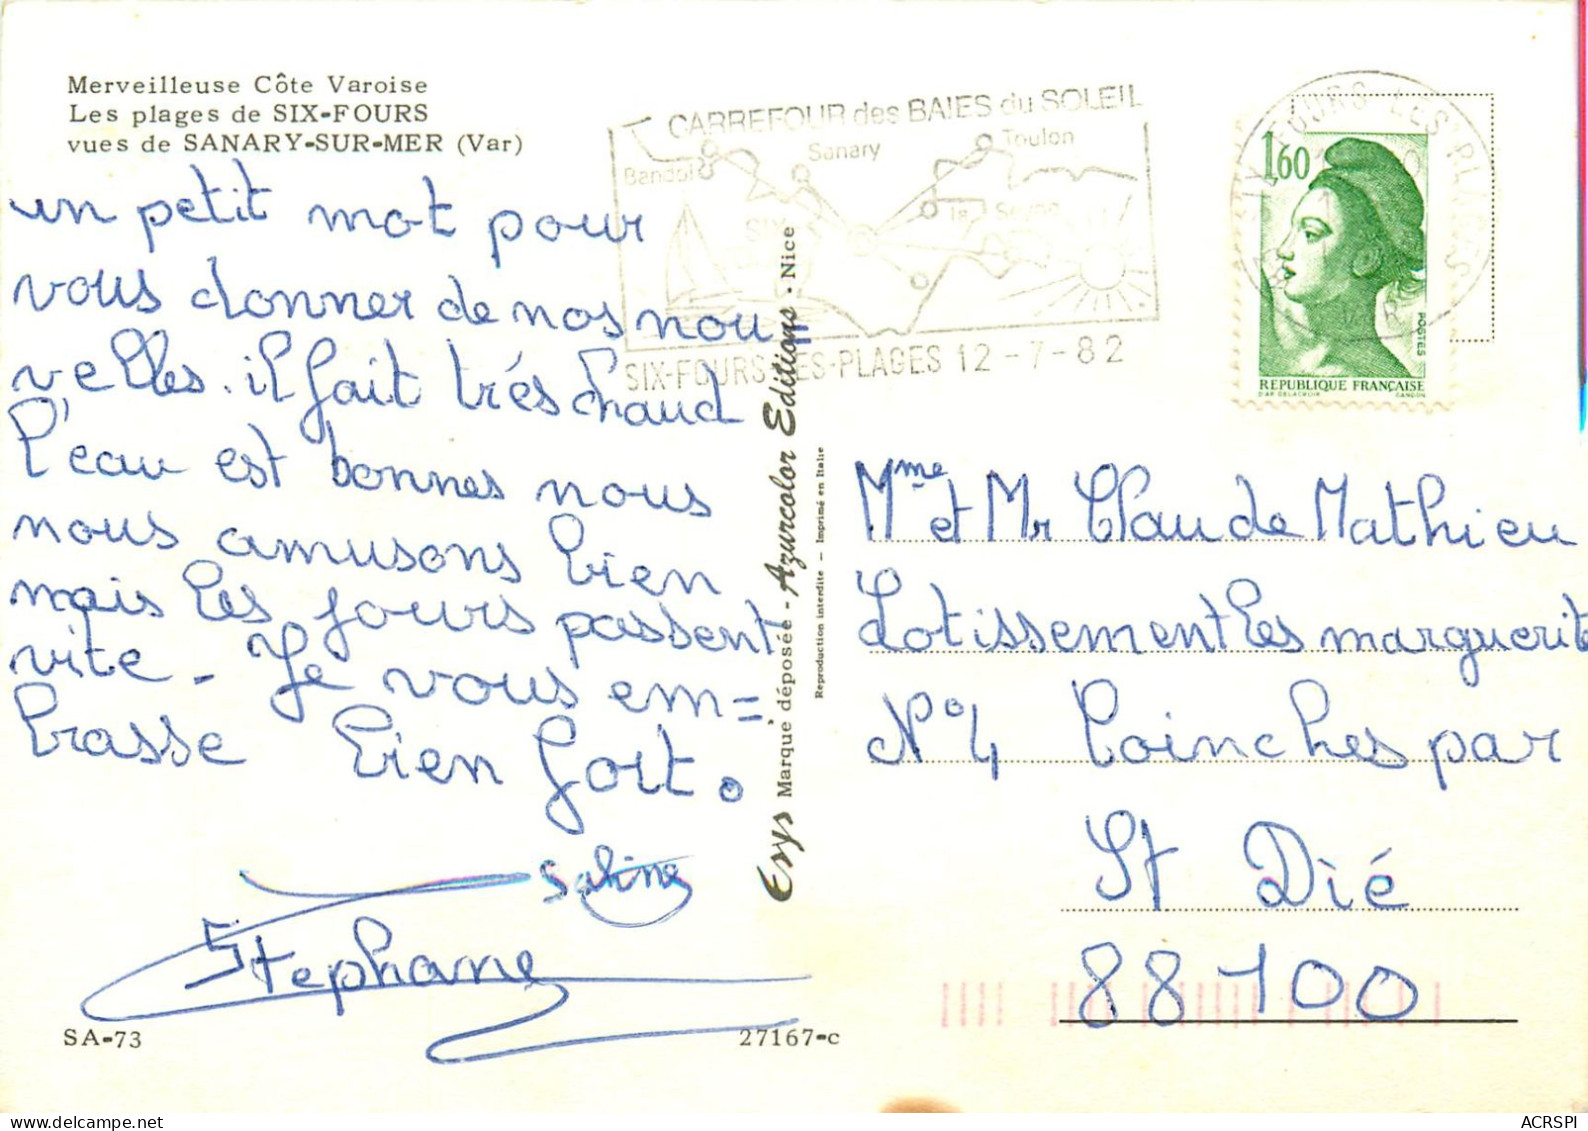 Merveilleuse Côte Varoise
Les plages de SIX-FOURS
vues de SANARY-SUR-MER (Var)
un petit mot pour
vous donner de nos nou
velles. il fait trés chaud
l'eau est bonnes nous
nous amusons bien
mais les jours passent
vite - Je vous em=
brasse bien fort.
Sabine
Stephane
SA-73
27167-c
CARREFOUR des BAIES du SOLEIL
Bandol
Sanary
Toulon
la Seyne
SIX
SIX-FOURS-LES-PLAGES 12-7-82
Erys Marque déposée - Azurcolor Editions - Nice
Reproduction interdite - Imprimé en Italie
SIX FOURS LES PLAGES
VAR
1,60
POSTES
REPUBLIQUE FRANÇAISE
D'AP. DELACROIX GANDON
Mme et Mr Claude Mathieu
Lotissement les marguerite
N°4 Coinches par
St Dié
88100
ACRSPI